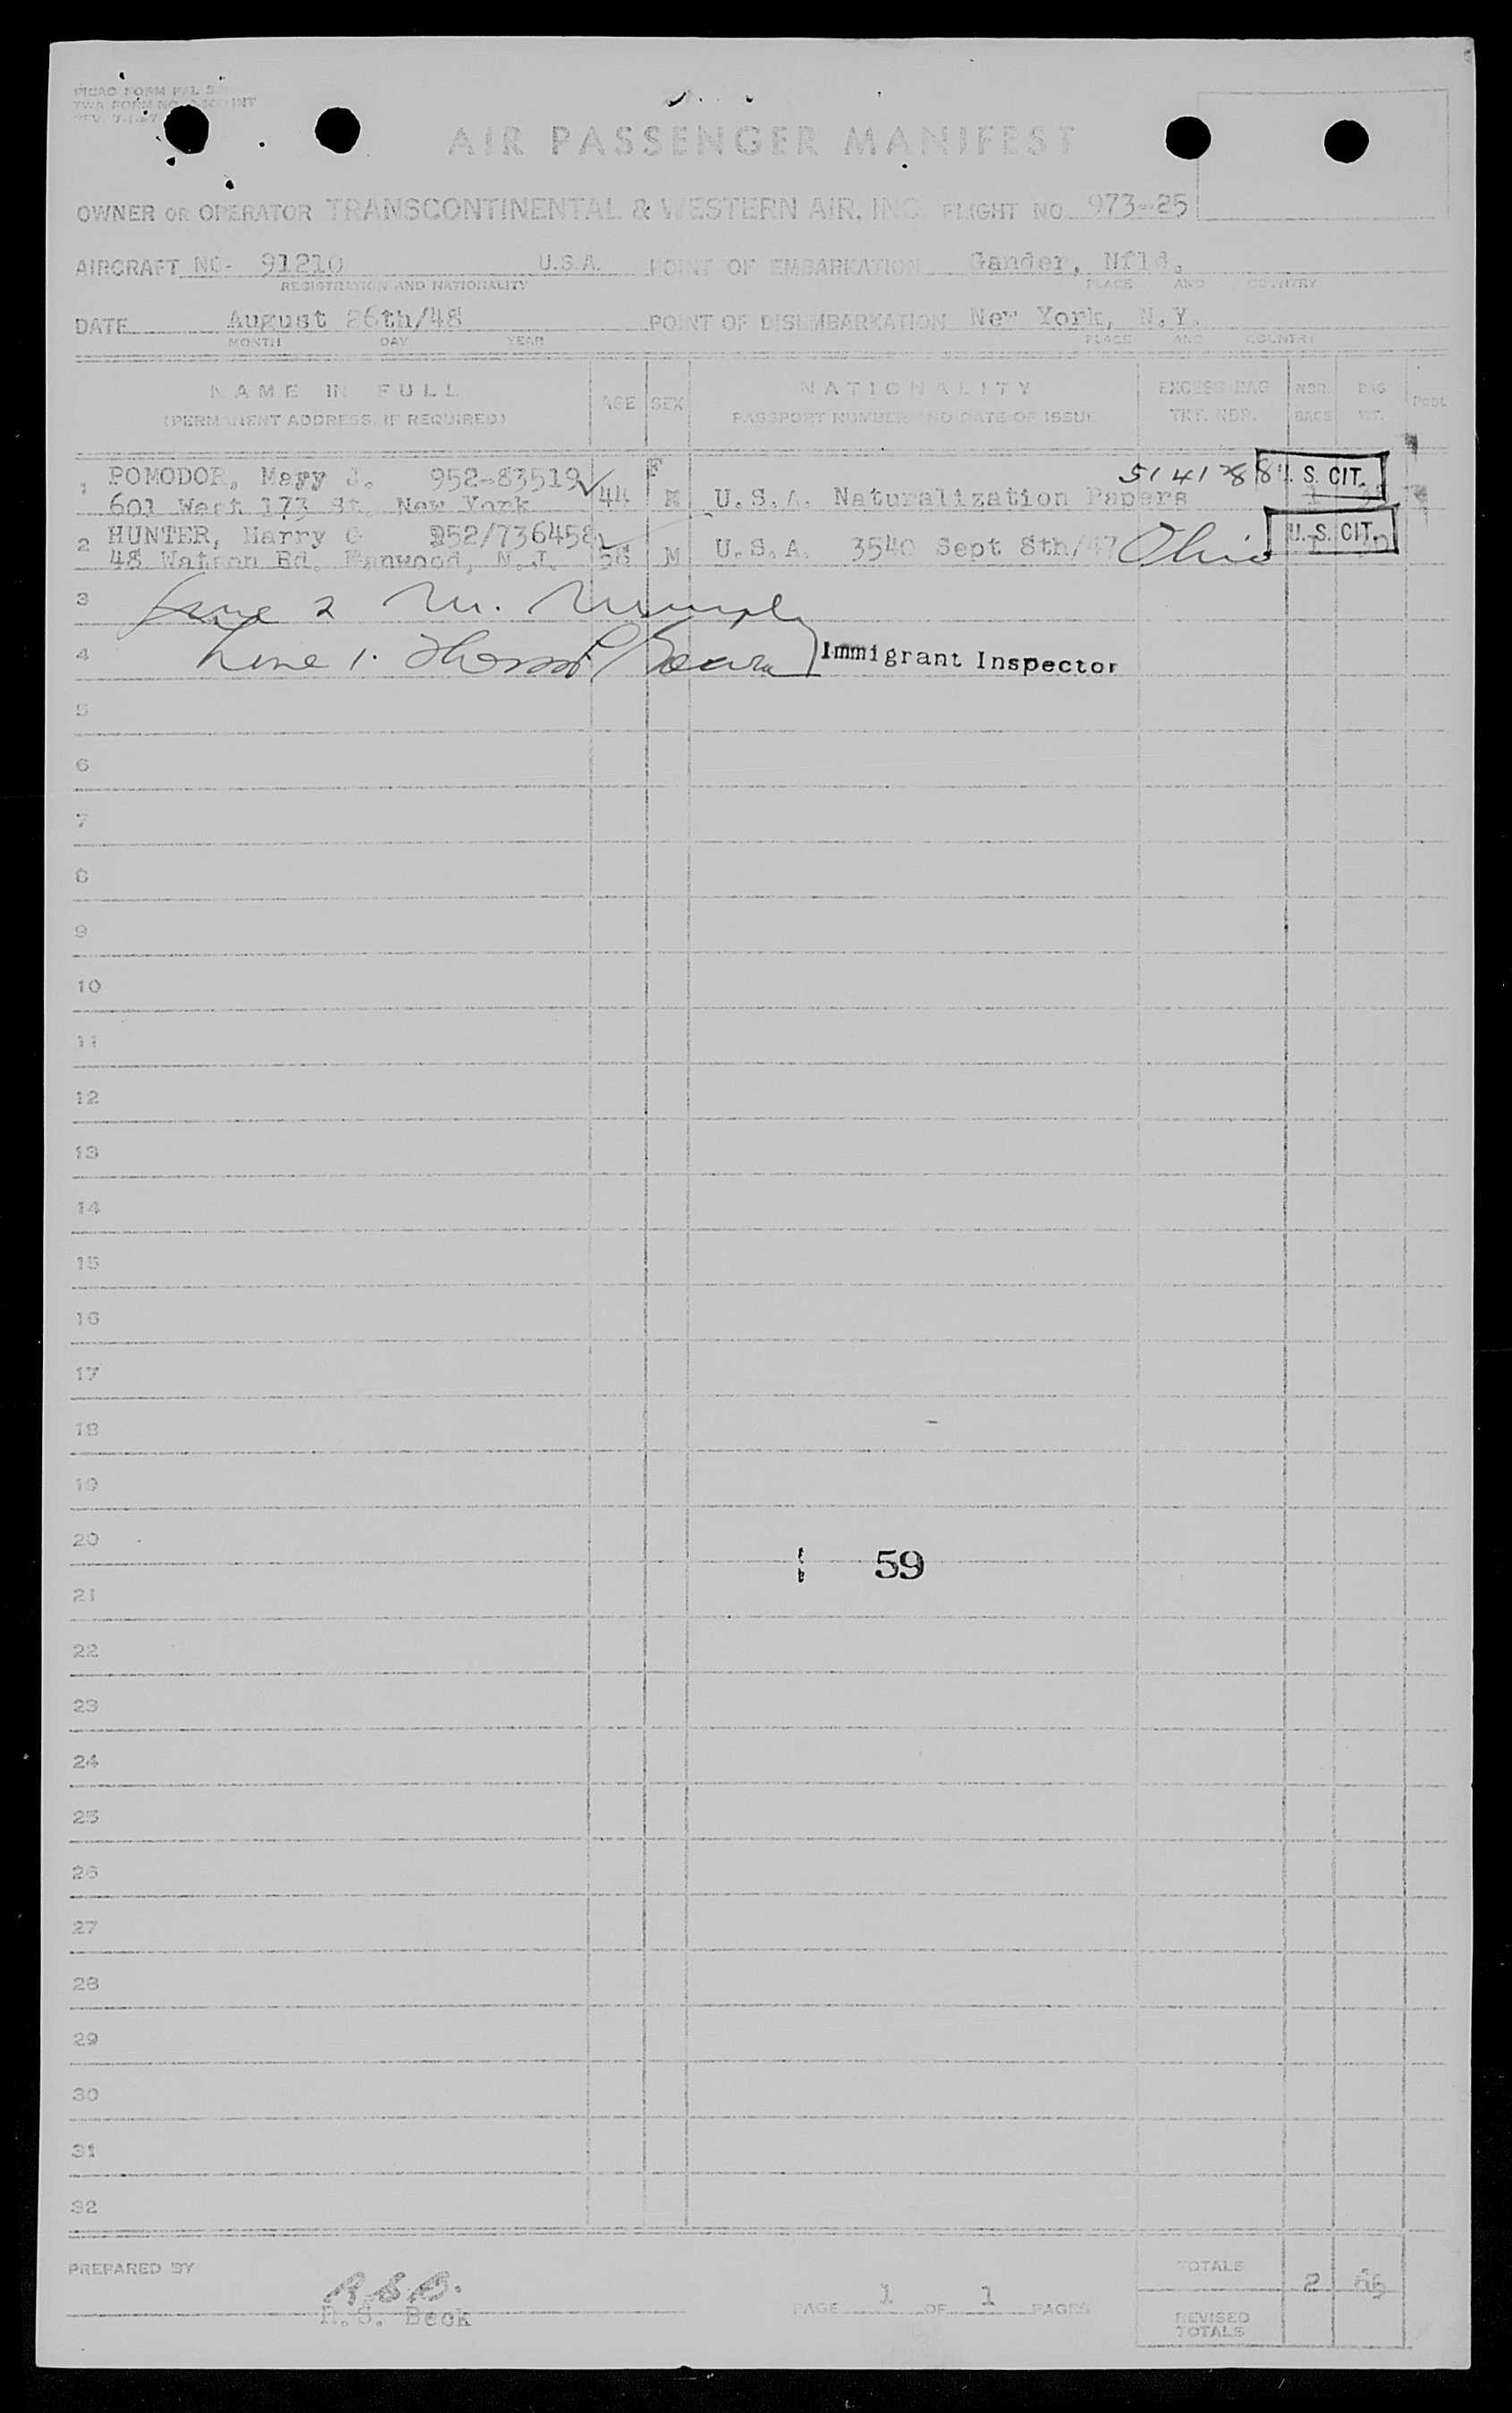 AIR PASSENGER MANIFEST
OWNER OR OPERATOR TRANSCONTINENTAL & WESTERN AIR, INC. FLIGHT NO. 973-25
AIRCRAFT NO- 91210 U.S.A. POINT OF EMBARKATION Gander, Nfld.
REGISTRATION AND NATIONALITY PLACE AND COUNTRY
DATE August 26th/48 POINT OF DISEMBARKATION New York, N.Y.
MONTH DAY YEAR PLACE AND COUNTRY
NAME IN FULL NATIONALITY EXCESS BAG NBR. BAG
(PERMANENT ADDRESS, IF REQUIRED) AGE SEX PASSPORT NUMBER AND DATE OF ISSUE TKT. NBR. BAGS WT. POOL
1 POMODOR, Mary J. 952-83519 F U.S. CIT.
601 West 173 St. New York 44 M U.S.A. Naturalization Papers
2 HUNTER, Harry G 952/736458 U.S. CIT.
48 Watson Rd. Fanwood, N.J. 58 M U.S.A. 3540 Sept 8th/47 Ohio
3 Line 2 M.
4 Line 1. Immigrant Inspector
5
6
7
8
9
10
11
12
13
14
15
16
17
18
19
20
59
21
22
23
24
25
26
27
28
29
30
31
32
PREPARED BY TOTALS 2
R.S.B.
R.S. Beck PAGE 1 OF 1 PAGES
REVISED
TOTALS